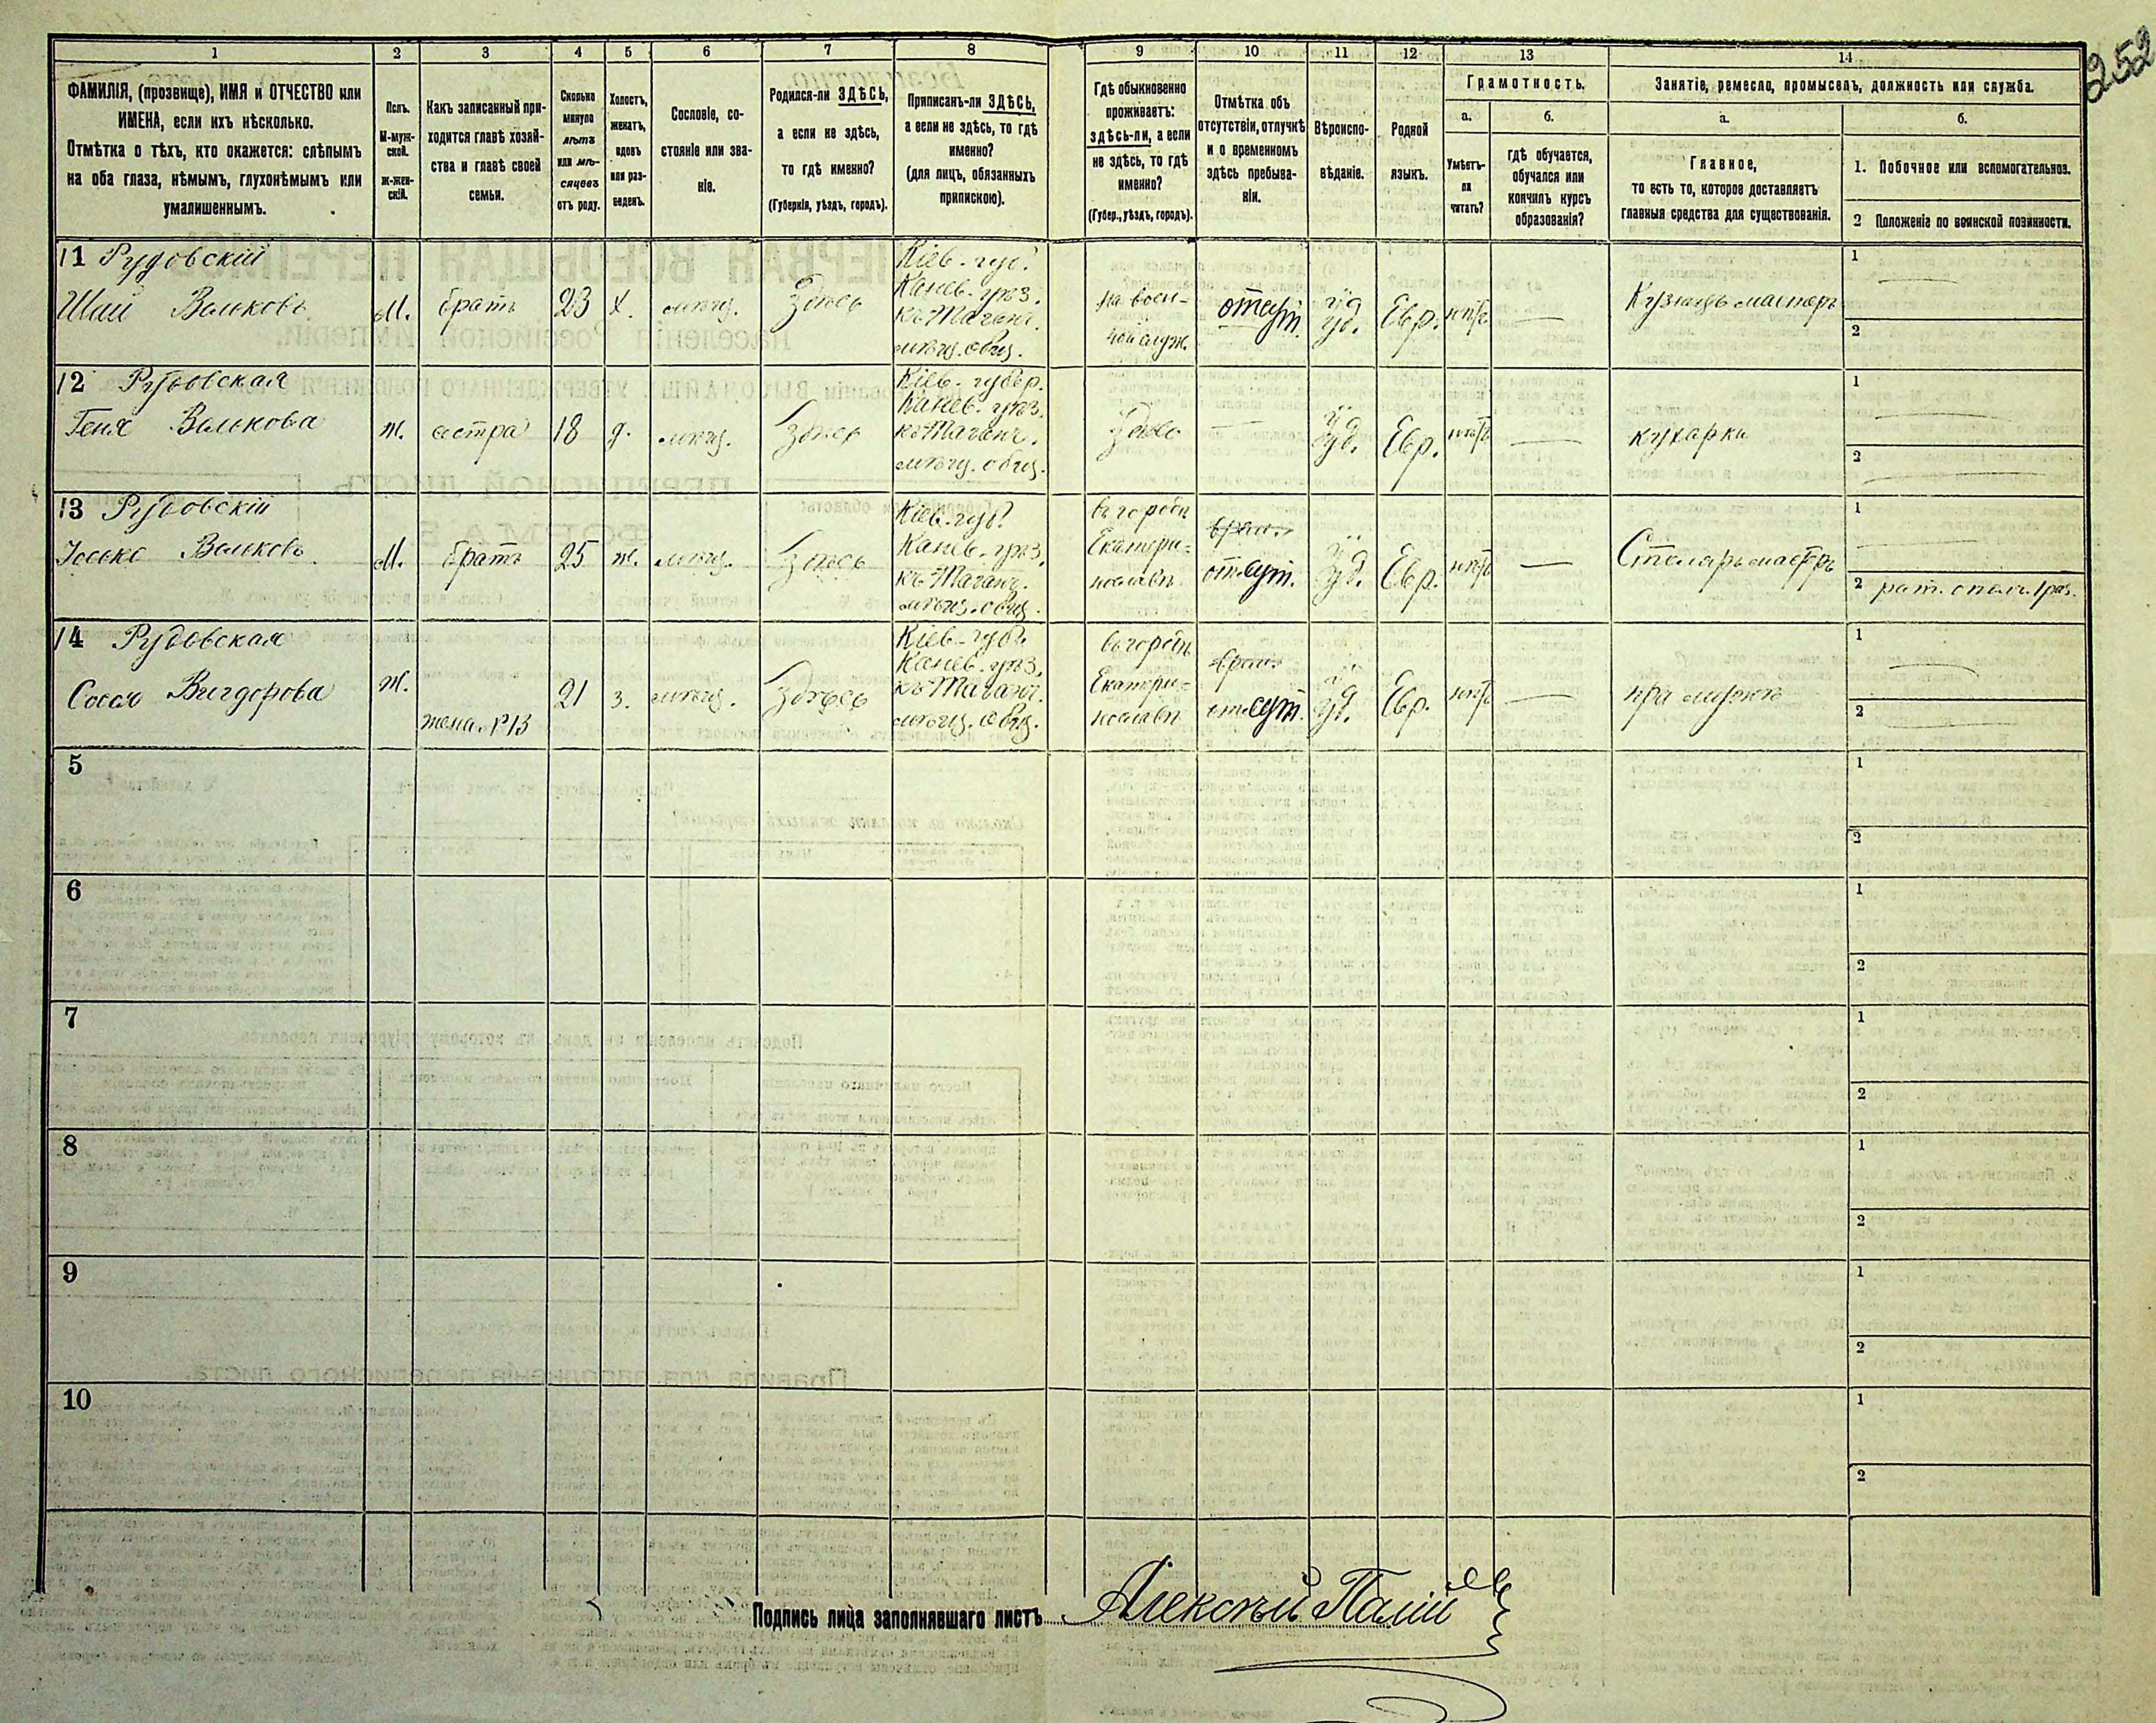 252
1 2 3 4 5 6 7 8 9 10 11 12 13 14
ФАМИЛІЯ, (прозвище), ИМЯ и ОТЧЕСТВО или
ИМЕНА, если ихъ нѣсколько.
Отмѣтка о тѣхъ, кто окажется: слѣпымъ
на оба глаза, нѣмымъ, глухонѣмымъ или
умалишеннымъ.
Полъ.
М-муж-
ской.
ж-жен-
скій.
Какъ записанный при-
ходится главѣ хозяй-
ства и главѣ своей
семьи.
Сколько
минуло
лѣтъ
или мѣ-
сяцевъ
отъ роду.
Холостъ,
женатъ,
вдовъ
или раз-
веденъ.
Сословіе, со-
стояніе или зва-
ніе.
Родился-ли ЗДѢСЬ,
а если не здѣсь,
то гдѣ именно?
(Губернія, уѣздъ, городъ).
Приписанъ-ли ЗДѢСЬ,
а если не здѣсь, то гдѣ
именно?
(для лицъ, обязанныхъ
припискою).
Гдѣ обыкновенно
проживаетъ:
здѣсь-ли, а если
не здѣсь, то гдѣ
именно?
(Губер., уѣздъ, городъ).
Отмѣтка объ
отсутствіи, отлучкѣ
и о временномъ
здѣсь пребыва-
ніи.
Вѣроиспо-
вѣданіе.
Родной
языкъ.
Грамотность.
а.
Умѣетъ-
ли
читать?
б.
гдѣ обучается,
обучался или
кончилъ курсъ
образованія?
Занятіе, ремесло, промыселъ, должность или служба.
а.
Главное,
то есть то, которое доставляетъ
главныя средства для существованія.
б.
1. Побочное или вспомогательное.
2 Положеніе по воинской повинности.
11 Рудовскій
Шай Вольковъ
м. братъ 23 х. мѣщ. Здѣсь
Кіев. губ.
Канев. уѣз.
къ Таганч.
мѣщ. общ.
на воен-
ной служ.
отсут. іуд. Евр. нѣтъ — Кузнецъ мастеръ
1 —
2
12 Рудовская
Геня Волькова
ж. сестра 18 д. мѣщ. Здѣсь
Кіев. губер.
Канев. уѣз.
къ Таганч.
мѣщ. общ.
Здѣсь — іуд. Евр. нѣтъ — кухарка
1 —
2 —
13 Рудовскій
Іосько Вольковъ
м. братъ 25 ж. мѣщ. Здѣсь
Кіев. губ.
Канев. уѣз.
къ Таганч.
мѣщ. общ.
въ городѣ
Екатери-
нославѣ
отсут. іуд. Евр. нѣтъ — Столяръ мастеръ
1 —
2 рат. ополч. 1 раз.
14 Рудовская
Сося Вигдорова
ж. жена № 13 21 з. мѣщ. Здѣсь
Кіев. губ.
Канев. уѣз.
къ Таганч.
мѣщ. общ.
въ городѣ
Екатери-
нославѣ
отсут. іуд. Евр. нѣтъ — при мужѣ
1 —
2 —
5 1
2
6 1
2
7 1
2
8 1
2
9 1
2
10 1
2
Подпись лица заполнявшаго листъ Алексѣй Палій